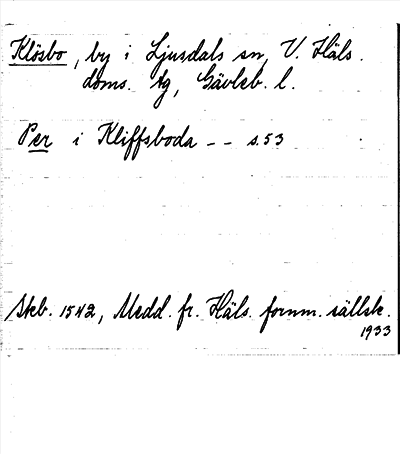 Klösbo, by i Ljusdals sn, V. Häls.
doms. tg, Gävleb. l.
Per i Kliffsboda -- s. 53
Skb. 1542, Medd. fr. Häls. fornm. sällsk.
1933